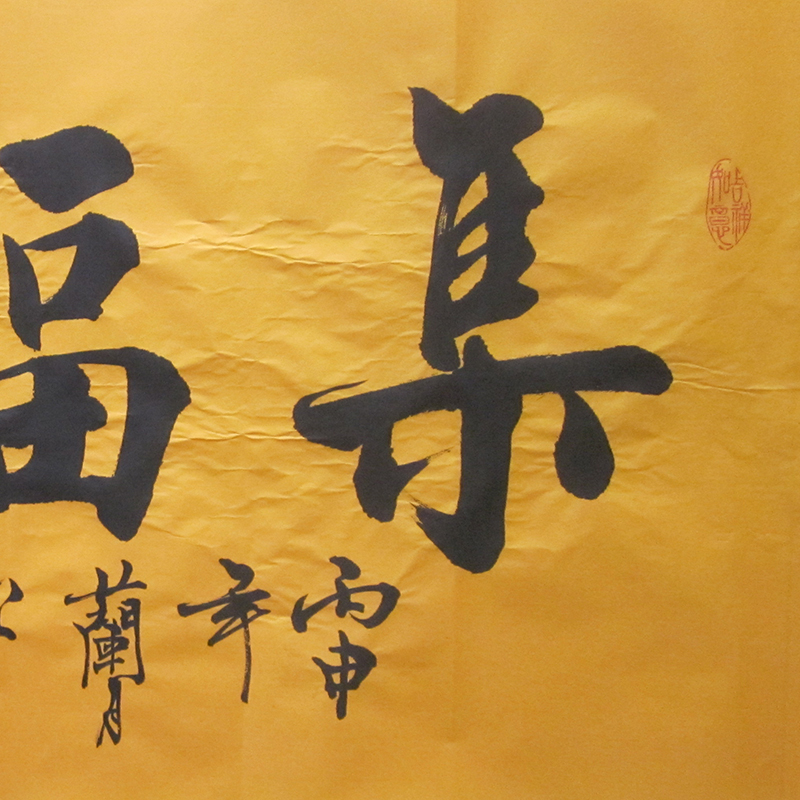 集福
丙申年蘭月
吉祥如意